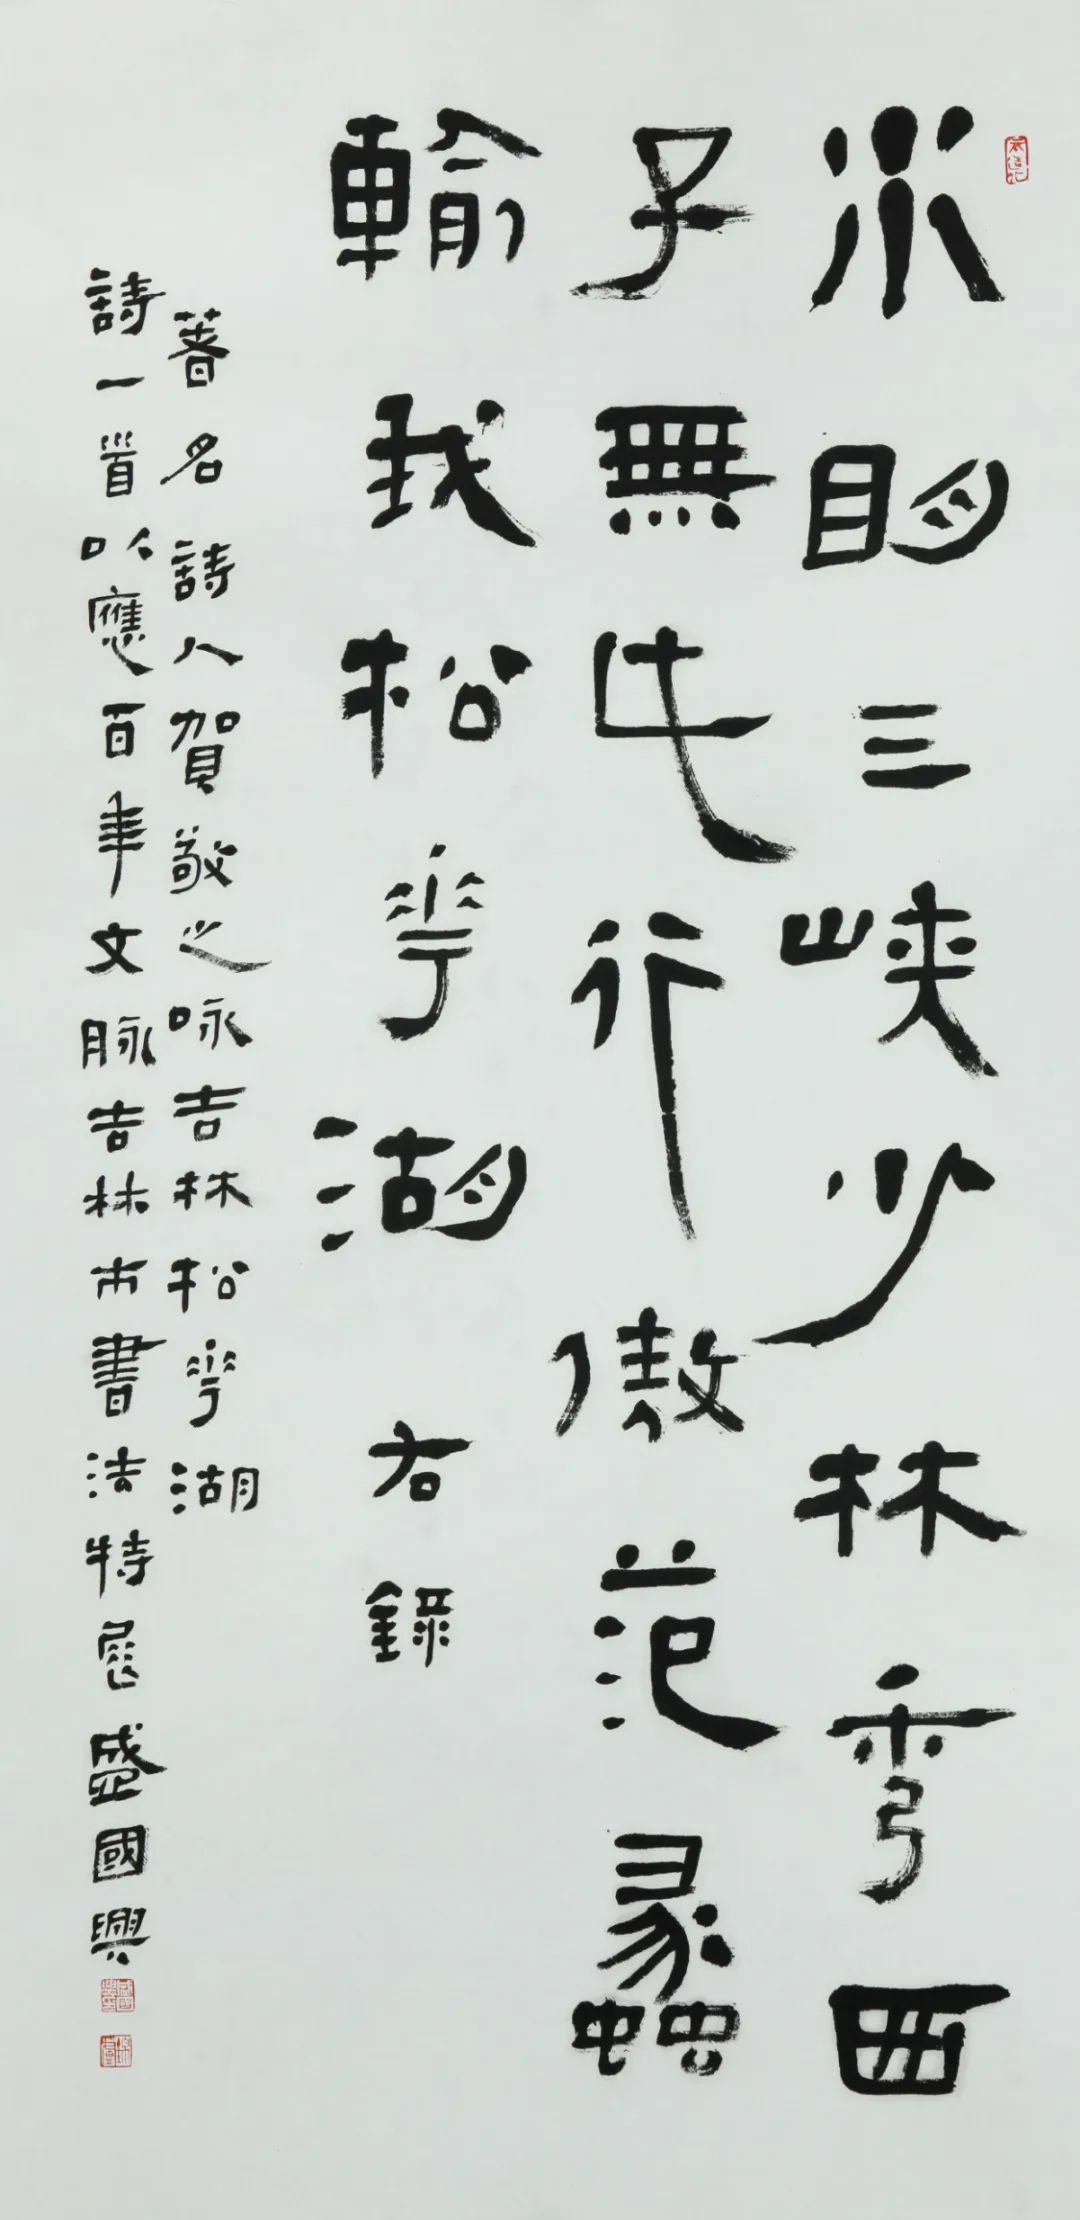 水眀三峽少林秀西
子無此行傲范蠡
輸我松花湖 右錄
著名詩人賀敬之咏吉林松花湖
詩一首以應百年文脉吉林市書法特展盛國興